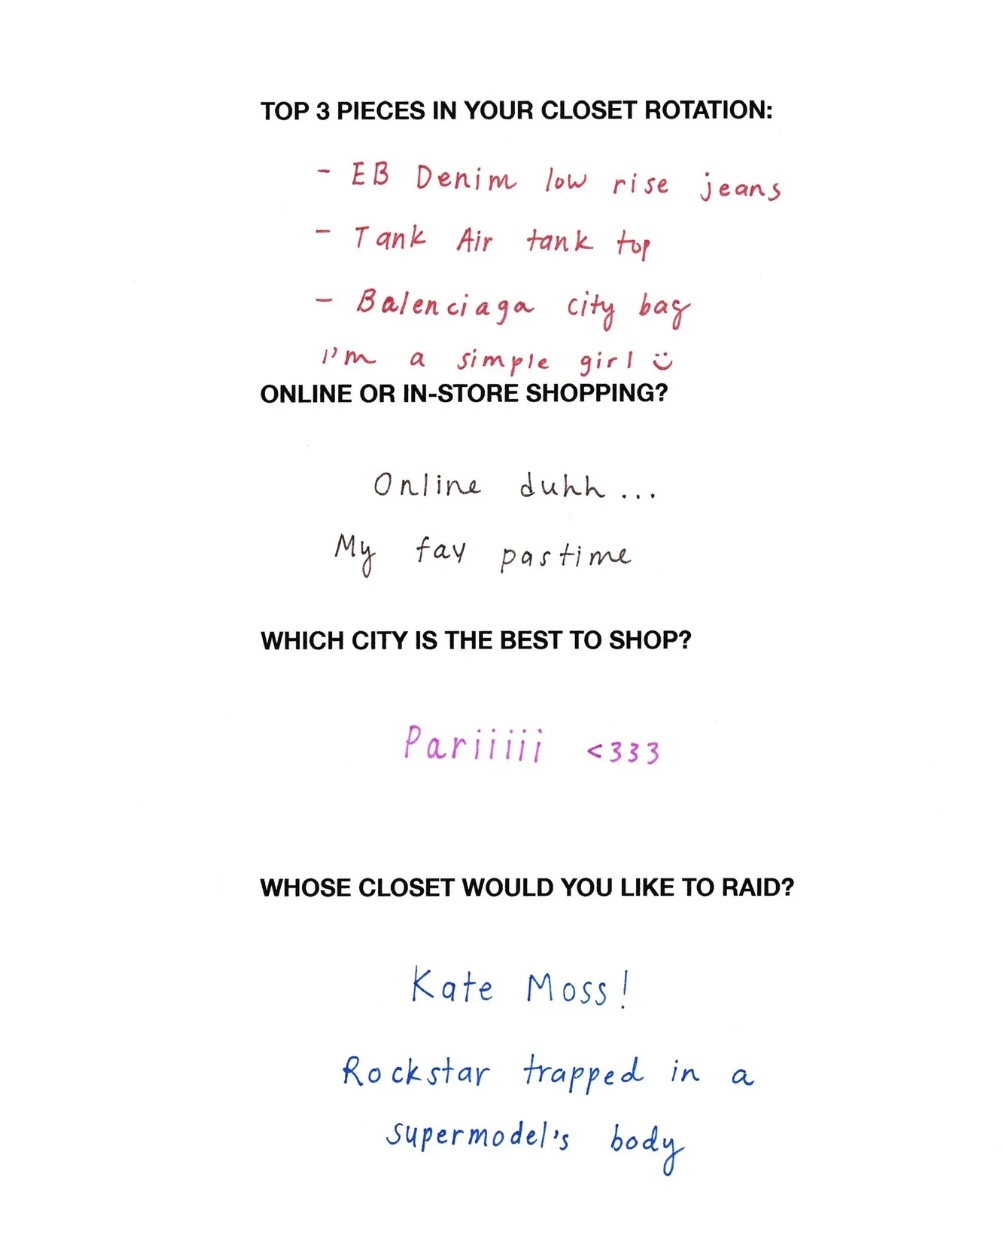 TOP 3 PIECES IN YOUR CLOSET ROTATION:
- EB Denim low rise jeans
- Tank Air tank top
- Balenciaga city bag
I'm a simple girl :)
ONLINE OR IN-STORE SHOPPING?
Online duhh...
My fav pastime
WHICH CITY IS THE BEST TO SHOP?
Pariiiii <333
WHOSE CLOSET WOULD YOU LIKE TO RAID?
Kate Moss!
Rockstar trapped in a
supermodel's body